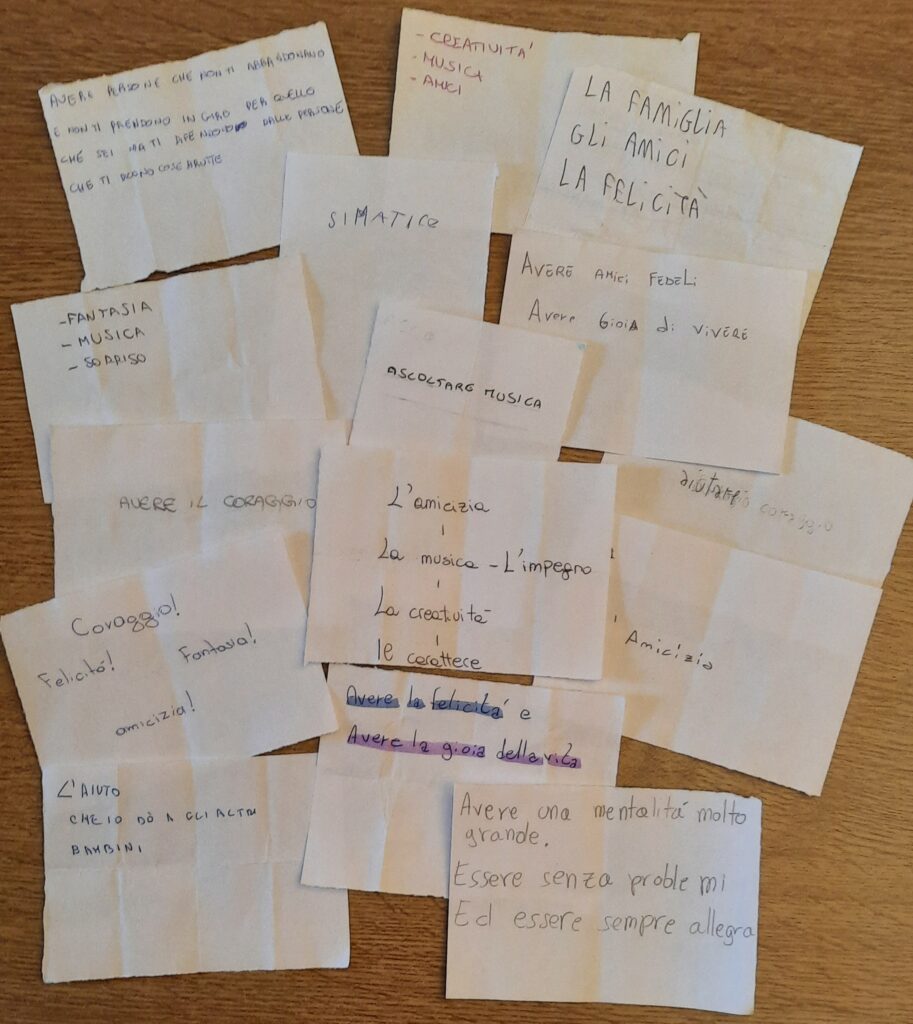 AVERE PERSONE CHE NON TI ABBANDONANO
E NON TI PRENDONO IN GIRO PER QUELLO
CHE SEI MA TI DIFENDONO DALLE PERSONE
CHE TI DICONO COSE BRUTTE
-CREATIVITA'
-MUSICA
-AMICI
LA FAMIGLIA
GLI AMICI
LA FELICITÀ
SIMATICO
AVERE AMICI FEDELI
Avere Gioia di VIVERE
-FANTASIA
- MUSICA
- SORRISO
ASCOLTARE MUSICA
AVERE IL CORAGGIO
L'amicizia
La musica - L'impegno
La creatività
le carattece
coraggio
Amicizia
Coraggio!
Felicitá!
Fantasia!
amicizia!
Avere la felicita' e
Avere la gioia della vita
L'AIUTO
CHE IO DÒ A GLI ALTRI
BAMBINI
Avere una mentalitá molto
grande.
Essere senza proble mi
Ed essere sempre allegra